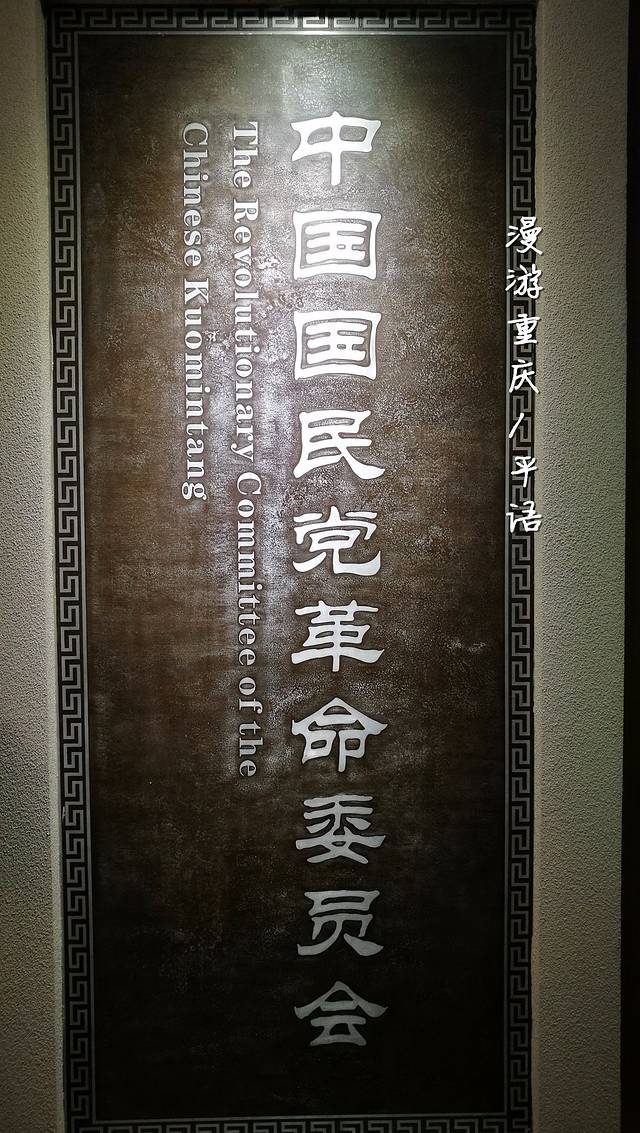 漫游重庆/平语
中国国民党革命委员会
The Revolutionary Committee of the
Chinese Kuomintang